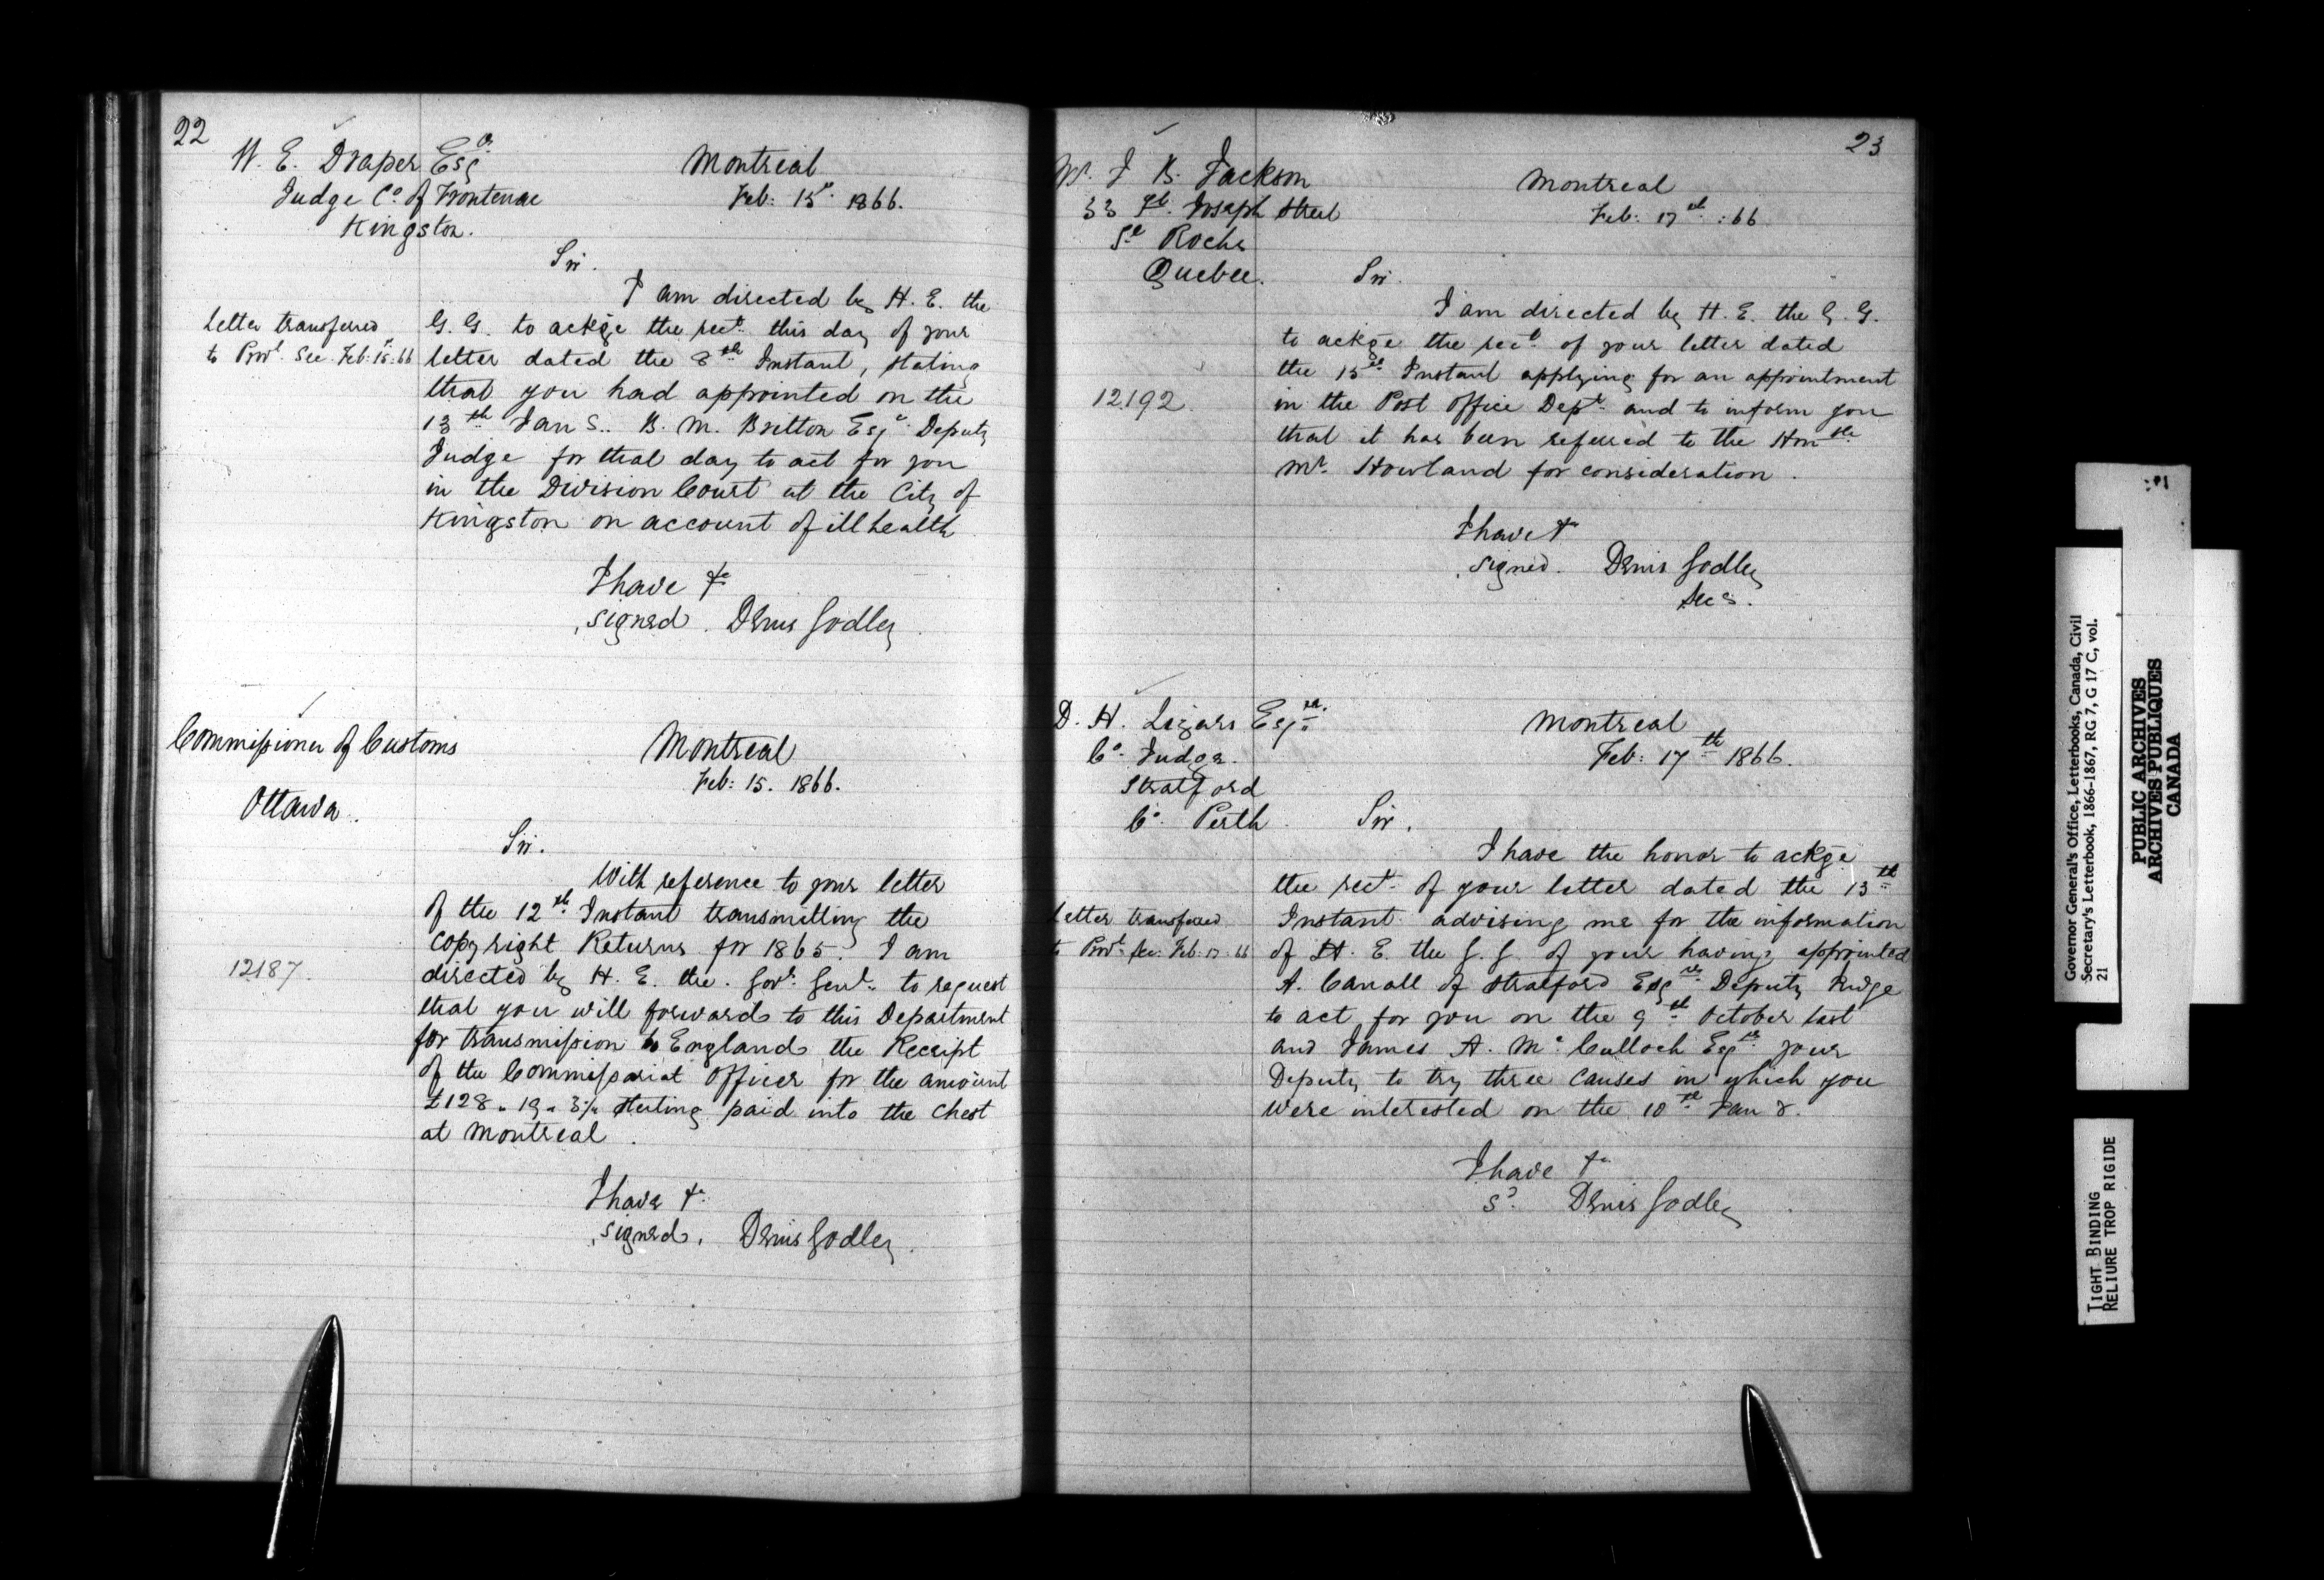 22
W. E. Draper Esqr
Judge Co. of Frontenac
Kingston.
Montreal
Feb: 15th 1866.
Sir.
I am directed by H. E. the
G. G. to ackge the rect. this day of your
letter dated the 8th Instant, stating
that you had appointed on the
13th Jany. B. M. Britton Esqr Deputy
Judge for that day to act for you
in the Division Court at the City of
Kingston on account of ill health
Letter transferred
to Provl. Sec. Feb: 15. 66
I have &c
signed. Denis Godley
Commissioner of Customs
Ottawa.
Montreal
Feb: 15. 1866.
Sir.
With reference to your letter
of the 12th Instant transmitting the
copyright Returns for 1865. I am
directed by H. E. the. Govr. Genl. to request
that you will forward to this Department
for transmission to England the Receipt
of the Commissariat Officer for the amount
£128 " 19 " 3½ Sterling paid into the Chest
at Montreal.
12187.
I have &c
signed. Denis Godley.
23
J. B. Jackson
33 St. Joseph Street
St Rochs
Quebec.
Montreal
Feb: 17th :66
Sir.
I am directed by H. E. the G. G.
to ackge the rect. of your letter dated
the 15th Instant applying for an appointment
in the Post Office Dept. and to inform you
that it has been referred to the Honble
Mr. Howland for consideration.
12192
I have &c
signed. Denis Godley
Secy.
D. H. Lizars Esqre.
Co. Judge.
Stratford
Co. Perth.
Montreal
Feb: 17th 1866.
Sir.
I have the honor to ackge
the rect. of your letter dated the 13th
Instant advising me for the information
of H. E. the G. G. of your having appointed
A. of Stratford Esqre Deputy Judge
to act for you on the 9th October last
and James A. Mc Culloch Esqre your
Deputy to try three causes in which you
were interested on the 10th Jany.
Letter transferred
to Provl. Sec. Feb. 17. 66
I have &c
sd. Denis Godley
Governor General's Office, Letterbooks, Canada, Civil
Secretary's Letterbook, 1866-1867, RG 7, G 17 C, vol.
21
PUBLIC ARCHIVES
ARCHIVES PUBLIQUES
CANADA
TIGHT BINDING
RELIURE TROP RIGIDE